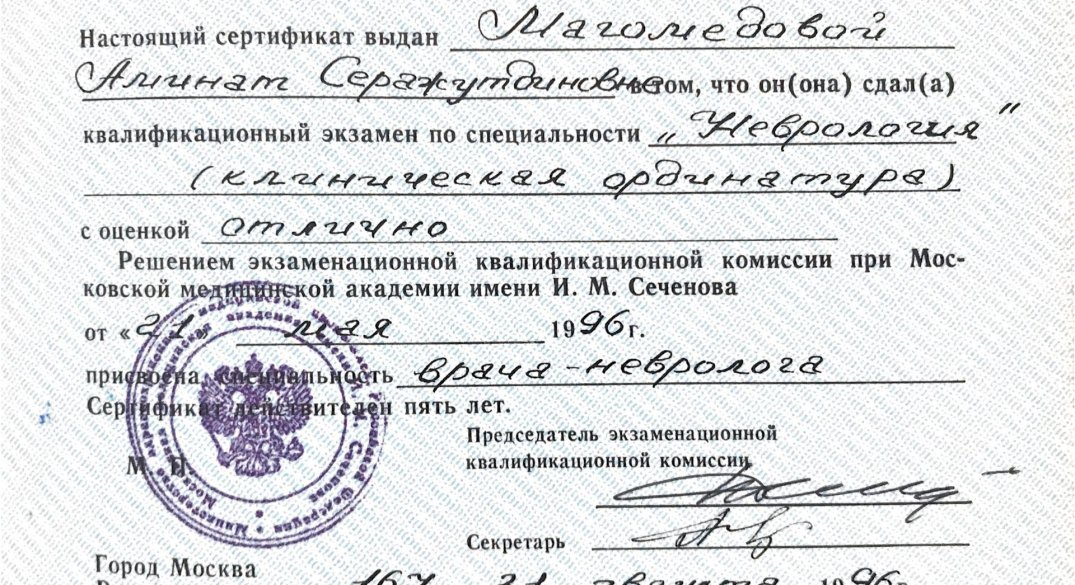 Настоящий сертификат выдан Магомедовой
Аминат Серажутдиновне в том, что он(она) сдал(а)
квалификационный экзамен по специальности „Неврология“
(клиническая ординатура)
с оценкой отлично
Решением экзаменационной квалификационной комиссии при Мос-
ковской медицинской академии имени И. М. Сеченова
от «21» мая 1996г.
присвоена специальность врача-невролога
Сертификат действителен пять лет.
Председатель экзаменационной
М. П.
квалификационной комиссии
Секретарь
Город Москва
164 21 августа 1996